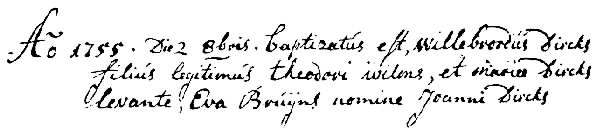 Aõ 1755. Die 2 8bris. baptizatus est, Willebrordus Dircks
filius legitimus theodori wilms, et mariæ Dircks
levante, Eva Bruijns nomine Joanni Dircks